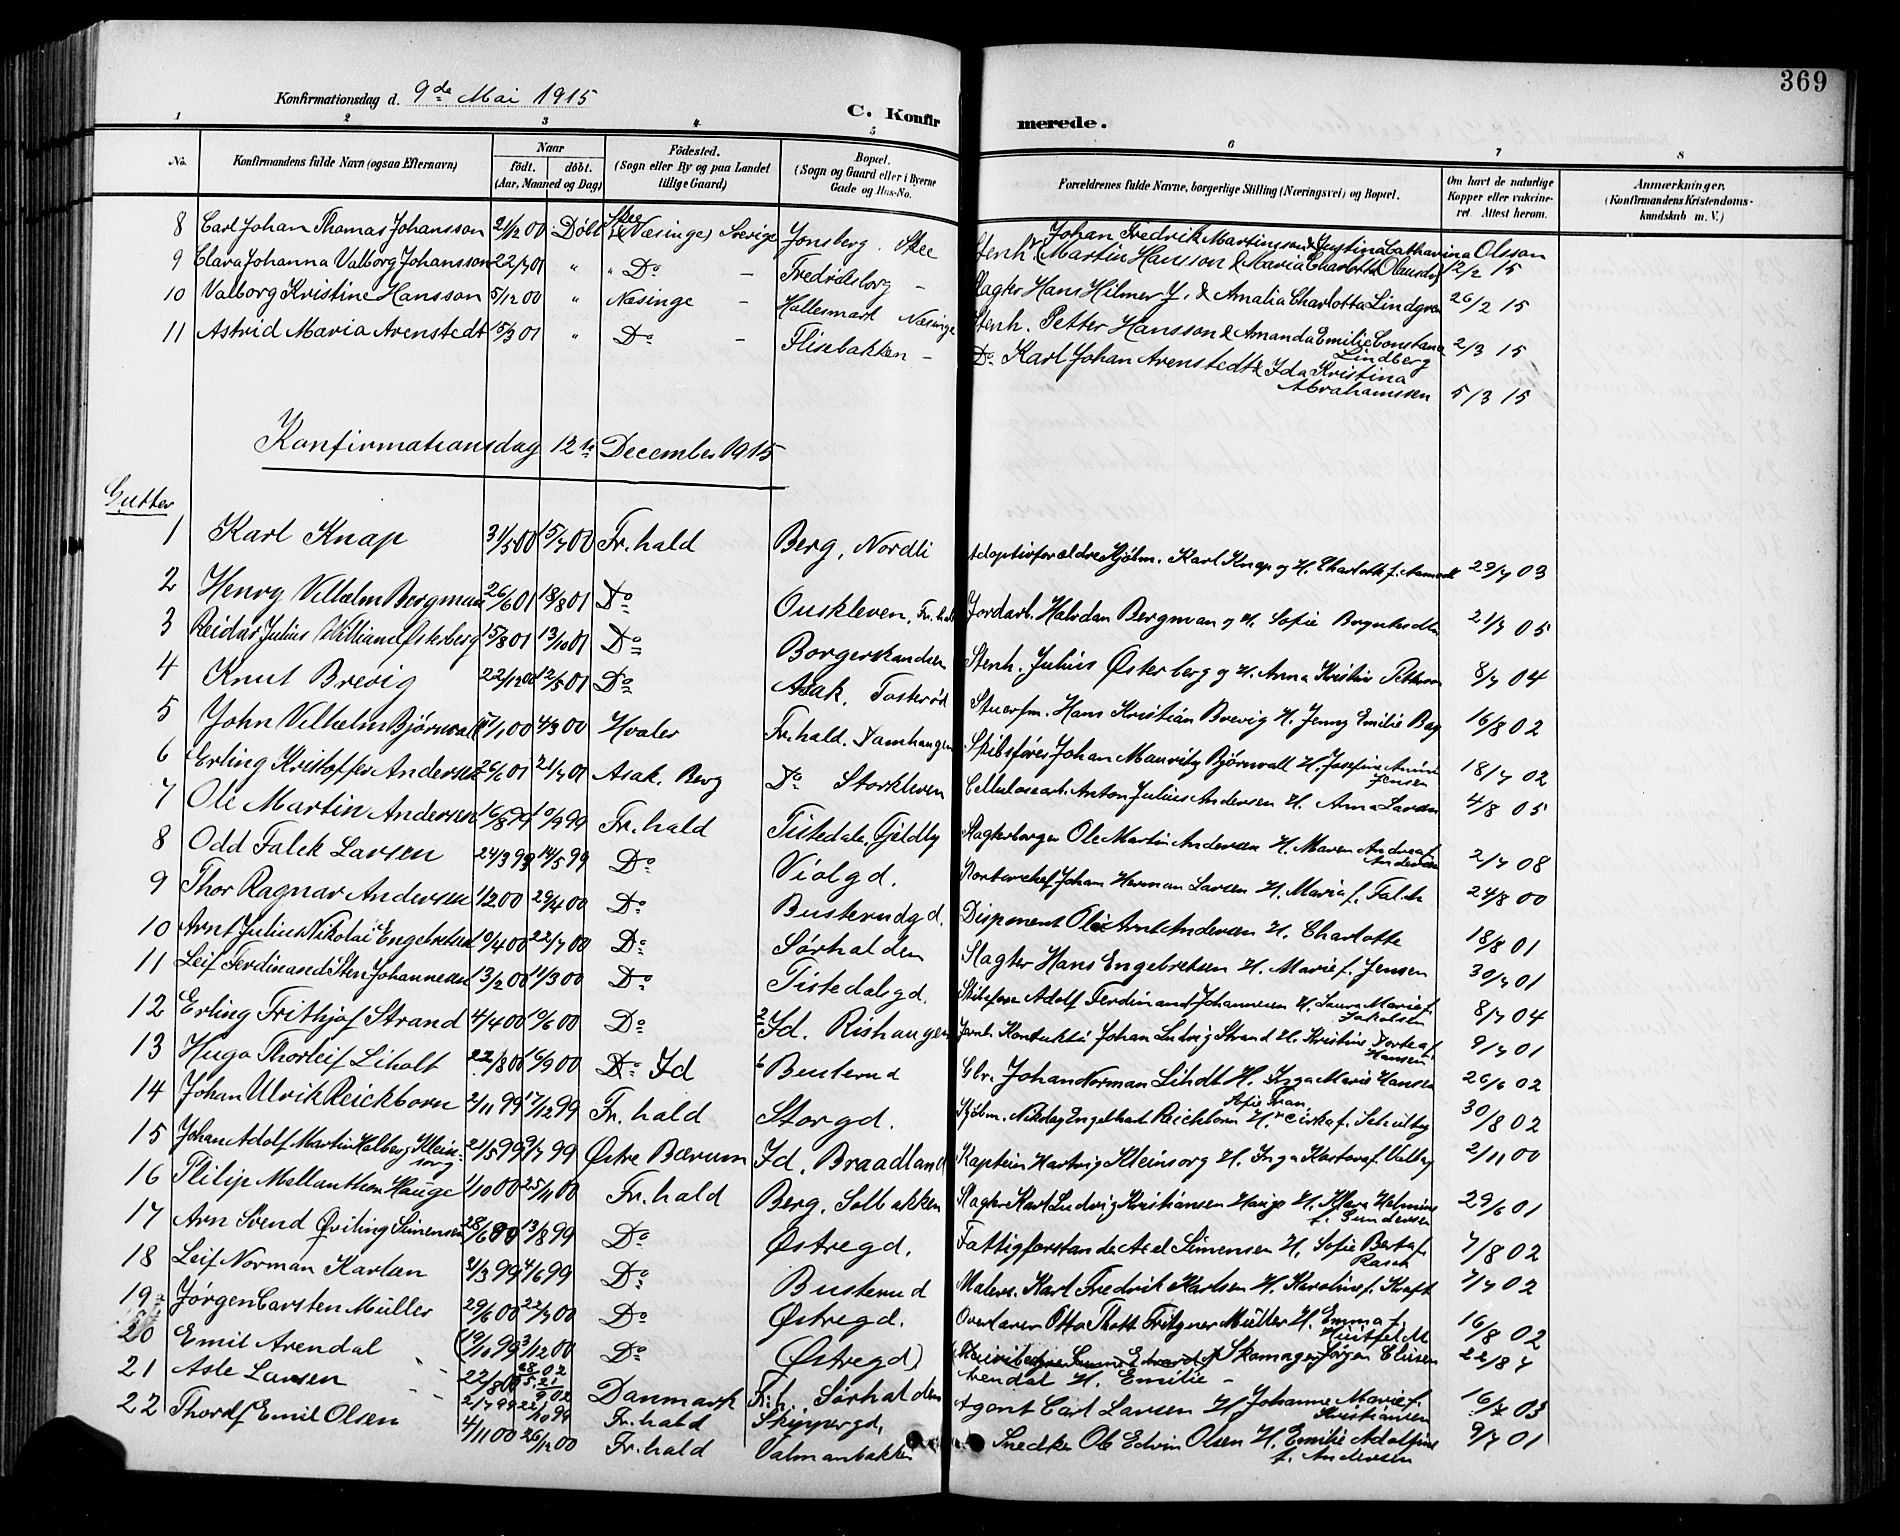 369
Konfirmationsdag d. 9de Mai 1915
C. Konfirmerede.
1 2 3 4 5 6 7 8
No. Konfirmandens fulde Navn (ogsaa Efternavn) Naar født. døbt. (Aar, Maaned og Dag) Fødested. (Sogn eller By og paa Landet tillige Gaard) Bopæl. (Sogn og Gaard eller i Byerne Gade og Hus-No. Forældrenes fulde Navne, borgerlige Stilling (Næringsvei) og Bopæl. Om havt de naturlige Kopper eller vakcineret. Attest herom. Anmærkninger. (Konfirmandens Kristendomskundskab m. V.)
8 Carl Johan Thomas Johansson 21/12 00 Døbt Skee (Næsinge) Sverige Jonsberg. Skee Johan Fredrik Martinsson & Justina Catharina Olsson 12/2 15
9 Clara Johanna Valborg Johansson 22/7 01 " " Do - Fredriksborg - Stenh. Martin Hansson & Maria Charlotta Olausd.
10 Valborg Kristine Hansson 5/12 00 " Næsinge - Hallesmark Næsinge Slagter Hans Hilmer J. & Amalia Charlotta Lindgren 26/2 15
11 Astrid Maria Arenstedt 15/3 01 " Do - Flisebakken - Stenh. Petter Hansson & Amanda Emilie Constana Lindberg 2/3 15
Do Karl Johan Arenstedt & Ida Kristina Abrahamssen 5/3 15
Konfirmationsdag 12te December 1915
Gutter
1 Karl Knap 31/5 00 15/7 00 Fr.hald Berg, Nordli Adoptivforældre Kjøbm. Karl Knap og H. Charlotte f. 29/7 03
2 Henry Vilhelm Bergman 26/6 01 18/8 01 Do Ouskleven, Fr.hald Jordarb. Halvdan Bergman og H. Sofie 21/7 05
3 Reidar Julius William Østerberg 15/8 01 13/10 01 Do Borgerskandsen Stenh. Julius Østerberg og H. Anna Kristine Pettersen 8/7 04
4 Knut Brevig 22/12 00 12/5 01 Do Asak, Tosterød Stuerfm. Hans Kristian Brevig H. Jenny Emilie Bay 16/8 02
5 John Vilhelm Bjørnvall 17/1 00 4/3 00 Hvaler Fr.hald. Damhaugen Skibsfører Johan Mauritz Bjørnvall H. Josefine Amina Jensen 18/7 02
6 Erling Kristoffer Andersen 26/1 01 21/7 01 Asak. Berg Do Storkleven Cellulosearb. Anton Julius Andersen H. Anna Larsen 4/8 05
7 Ole Martin Andersen 16/8 99 10/9 99 Fr.hald Tistedalen, Fjeldby Slagterborger Ole Martin Andersen H. Maren Andrea f. Andersen 2/7 08
8 Odd Falck Larsen 24/3 99 14/5 99 Do Violgd. Kontorchef Johan Herman Larsen H. Maria f. Falch 24/8 00
9 Thor Ragnar Andersen 1/2 00 29/4 00 Do Busterudgd. Disponent Ole Arnt Andersen H. Charlotte 18/8 01
10 Arnt Julius Nikolai Engebretsen 19/4 00 22/7 00 Do Sørhalden Slagter Hans Engebretsen H. Marie f. Jensen 30/7 01
11 Leif Ferdinand Sten Johannesen 13/2 00 11/3 00 Do Tistedalsgd. Skibsfører Adolf Ferdinand Johannesen H. Laura Marie f. Jakobsen 8/7 04
12 Erling Frithjof Strand 4/4 00 10/6 00 Do Id. Rishaugen Jernb. Konduktør Johan Ludvig Strand H. Kristine Dorthea f. Hansen 9/7 01
13 Hugo Thorleif Liholt 22/8 00 16/9 00 Do Id Busterud Gbr. Johan Norman Liholt H. Inga Marie Hansen 26/6 02
14 Johan Ulrik Reichborn 2/11 99 17/12 99 Fr.hald Storgd. Kjøbm. Nikolay Engelhart Reichborn H. Sofie Franciska f. Schultz 30/8 02
15 Johan Adolf Martin Halberg Kleinsorg 21/5 99 9/7 99 Østre Bærum Id. Braadland Kaptein Hartvig Kleinsorg H. Inga Hartava f. Valby 2/11 00
16 Philip Mellanthon Hauge 1/10 00 25/11 00 Fr.hald Berg, Solbakken Slagter Karl Ludvig Kristiansen Hauge H. Klara Helmine f. Gundersen 29/6 01
17 Arn Svend Qviling Simensen 28/6 99 13/8 99 Do Østregd. Fattigforstander Axel Simensen H. Sofie Berta f. Rasch 7/8 02
18 Leif Norman Karlsen 31/3 99 4/6 99 Do Busterud Malerm. Karl Fredrik Karlsen H. Karoline f. Kraft 7/7 02
19 Jørgen Carsten Müller 29/6 00 22/7 00 Do Østregd. Overlærer Otto Thott Fritzner Müller H. Emma f. Huitfeldt 16/8 02
20 Emil Arendal (19/10 99 3/12 00 Do Østregd) Skomager Jørgen Eliesen Arendal H. Emilie - 22/8 7
21 Asle Larsen 22/8 00 Danmark Fr.h. Sørhalden Agent Carl Larsen H. Johanne Marie f. Kristiansen 16/7 03
2/7 99 22/10 99 Fr.hald Skippergd.
22 Thorolf Emil Olsen 4/11 00 26/12 00 Fr.hald Valmanbakken Snedker Ole Edvin Olsen H. Emilie Adolfine f. Andersen 9/7 01